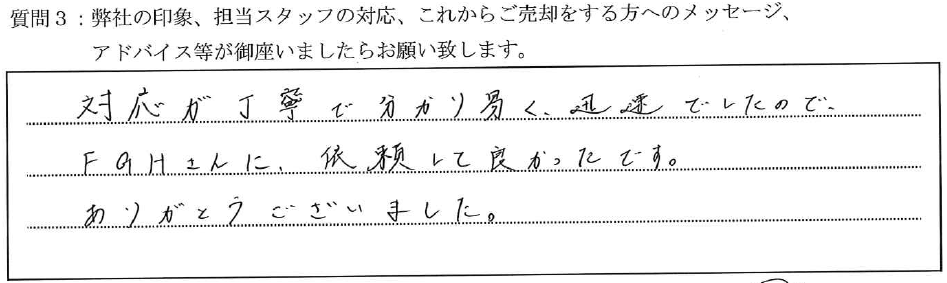 質問3：弊社の印象、担当スタッフの対応、これからご売却をする方へのメッセージ、
アドバイス等が御座いましたらお願い致します。
対応が丁寧で分かり易く、迅速でしたので、
FGHさんに、依頼して良かったです。
ありがとうございました。